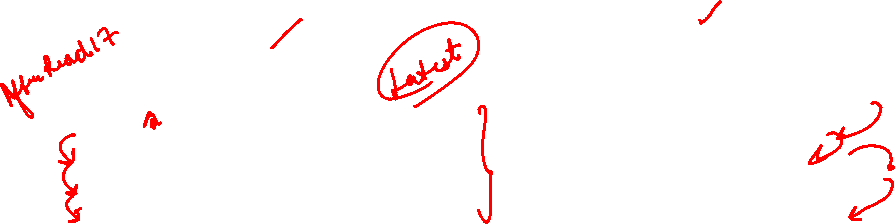 After Read 17
Latest